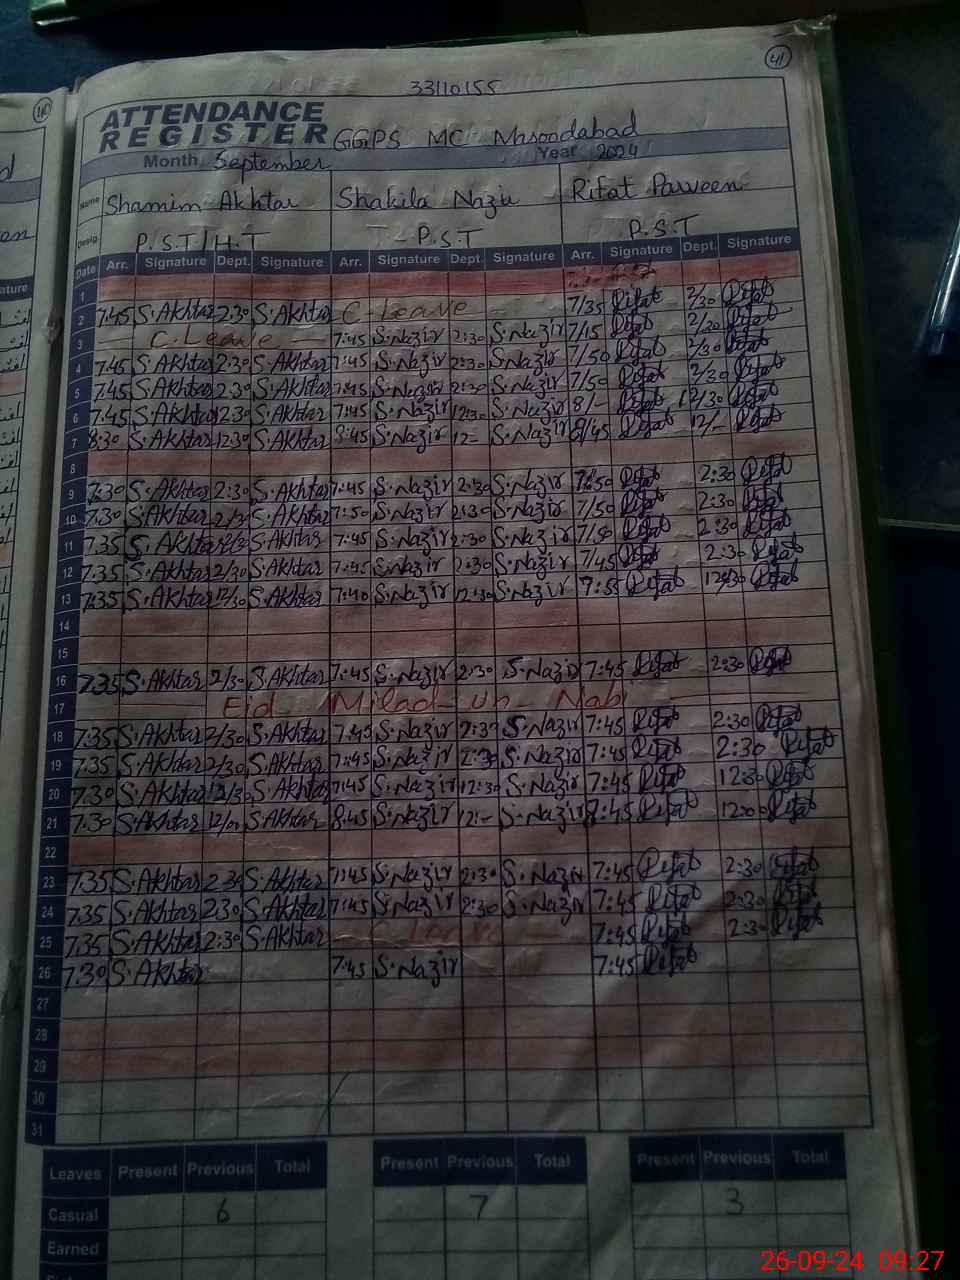 41
33110155
ATTENDANCE
REGISTER GGPS MC Masoodabad
Month September Year 2024
Name Shamim Akhtar Shakila Nazir Rifat Parveen
Desig. P.S.T/H.T P.S.T P.S.T
Date Arr. Signature Dept. Signature Arr. Signature Dept. Signature Arr. Signature Dept. Signature
1
2 7.45 S.Akhtar 2.30 S.Akhtar C-Leave 7/35 Rifat 2/30 Rifat
3 C.Leave 7:45 S.Nazir 2:30 S.Nazir 7/15 Rifat 2/30 Rifat
4 7.45 S.Akhtar 2.30 S.Akhtar 7:45 S.Nazir 2:30 S.Nazir 7/50 Rifat 2/30 Rifat
5 7.45 S.Akhtar 2.30 S.Akhtar 7:45 S.Nazir 2:30 S.Nazir 7/50 Rifat 2/30 Rifat
6 7.45 S.Akhtar 2.30 S.Akhtar 7:45 S.Nazir 12:30 S.Nazir 8/- Rifat 12/30 Rifat
7 8:30 S.Akhtar 12:30 S.Akhtar 8:45 S.Nazir 12- S.Nazir 8/45 Rifat 12/- Rifat
8
9 7:30 S.Akhtar 2:30 S.Akhtar 7:45 S.Nazir 2:30 S.Nazir 7:50 Rifat 2:30 Rifat
10 7.30 S.Akhtar S.Akhtar 7:50 S.Nazir 2:30 S.Nazir 7/50 Rifat 2:30 Rifat
11 7.35 S.Akhtar S.Akhtar 7:45 S.Nazir 2:30 S.Nazir 7/50 Rifat 2:30 Rifat
12 7.35 S.Akhtar 2/30 S.Akhtar 7:45 S.Nazir 2:30 S.Nazir 7/45 Rifat 2:30 Rifat
13 7:35 S.Akhtar 12/30 S.Akhtar 7:40 S.Nazir 12:30 S.Nazir 7:55 Rifat 12:30 Rifat
14
15
16 7.35 S.Akhtar 2/30 S.Akhtar 7:45 S.Nazir 2:30 S.Nazir 7:45 Rifat 2:30 Rifat
17 Eid Milad-un-Nabi
18 7.35 S.Akhtar 2/30 S.Akhtar 7:45 S.Nazir 2:30 S.Nazir 7:45 Rifat 2:30 Rifat
19 7.35 S.Akhtar 2/30 S.Akhtar 7:45 S.Nazir 2:30 S.Nazir 7:45 Rifat 2:30 Rifat
20 7.30 S.Akhtar 12/30 S.Akhtar 7:45 S.Nazir 12:30 S.Nazir 7:45 Rifat 12:30 Rifat
21 7.30 S.Akhtar S.Akhtar 8:45 S.Nazir 12:- S.Nazir Rifat 12:00 Rifat
22
23 7.35 S.Akhtar 2.30 S.Akhtar 7:45 S.Nazir 2:30 S.Nazir 7:45 Rifat 2:30 Rifat
24 7.35 S.Akhtar 2.30 S.Akhtar 7:45 S.Nazir 2:30 S.Nazir 7:45 Rifat 2:30 Rifat
25 7.35 S.Akhtar 2:30 S.Akhtar C Leave 7:45 Rifat 2:30 Rifat
26 7.30 S.Akhtar 7:45 S.Nazir 7:45 Rifat
27
28
29
30
31
Leaves Present Previous Total Present Previous Total Present Previous Total
Casual 6 7 3
Earned
26-09-24 09:27